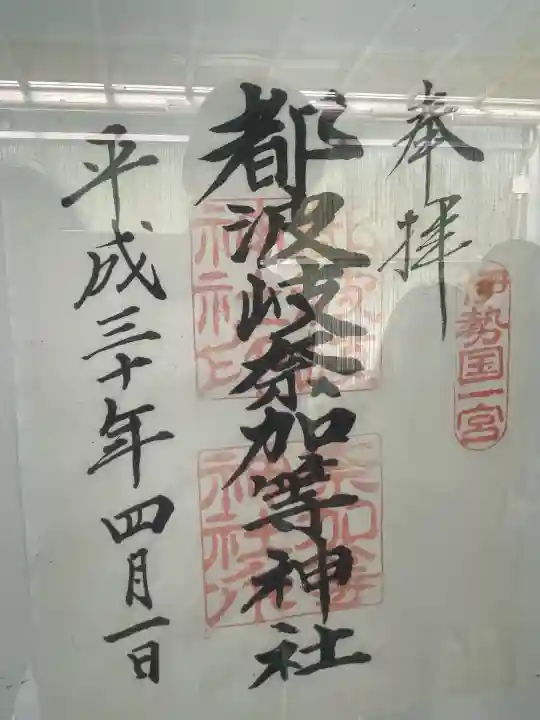 奉拝
伊勢国一宮
都波岐奈加等神社
平成三十年四月一日